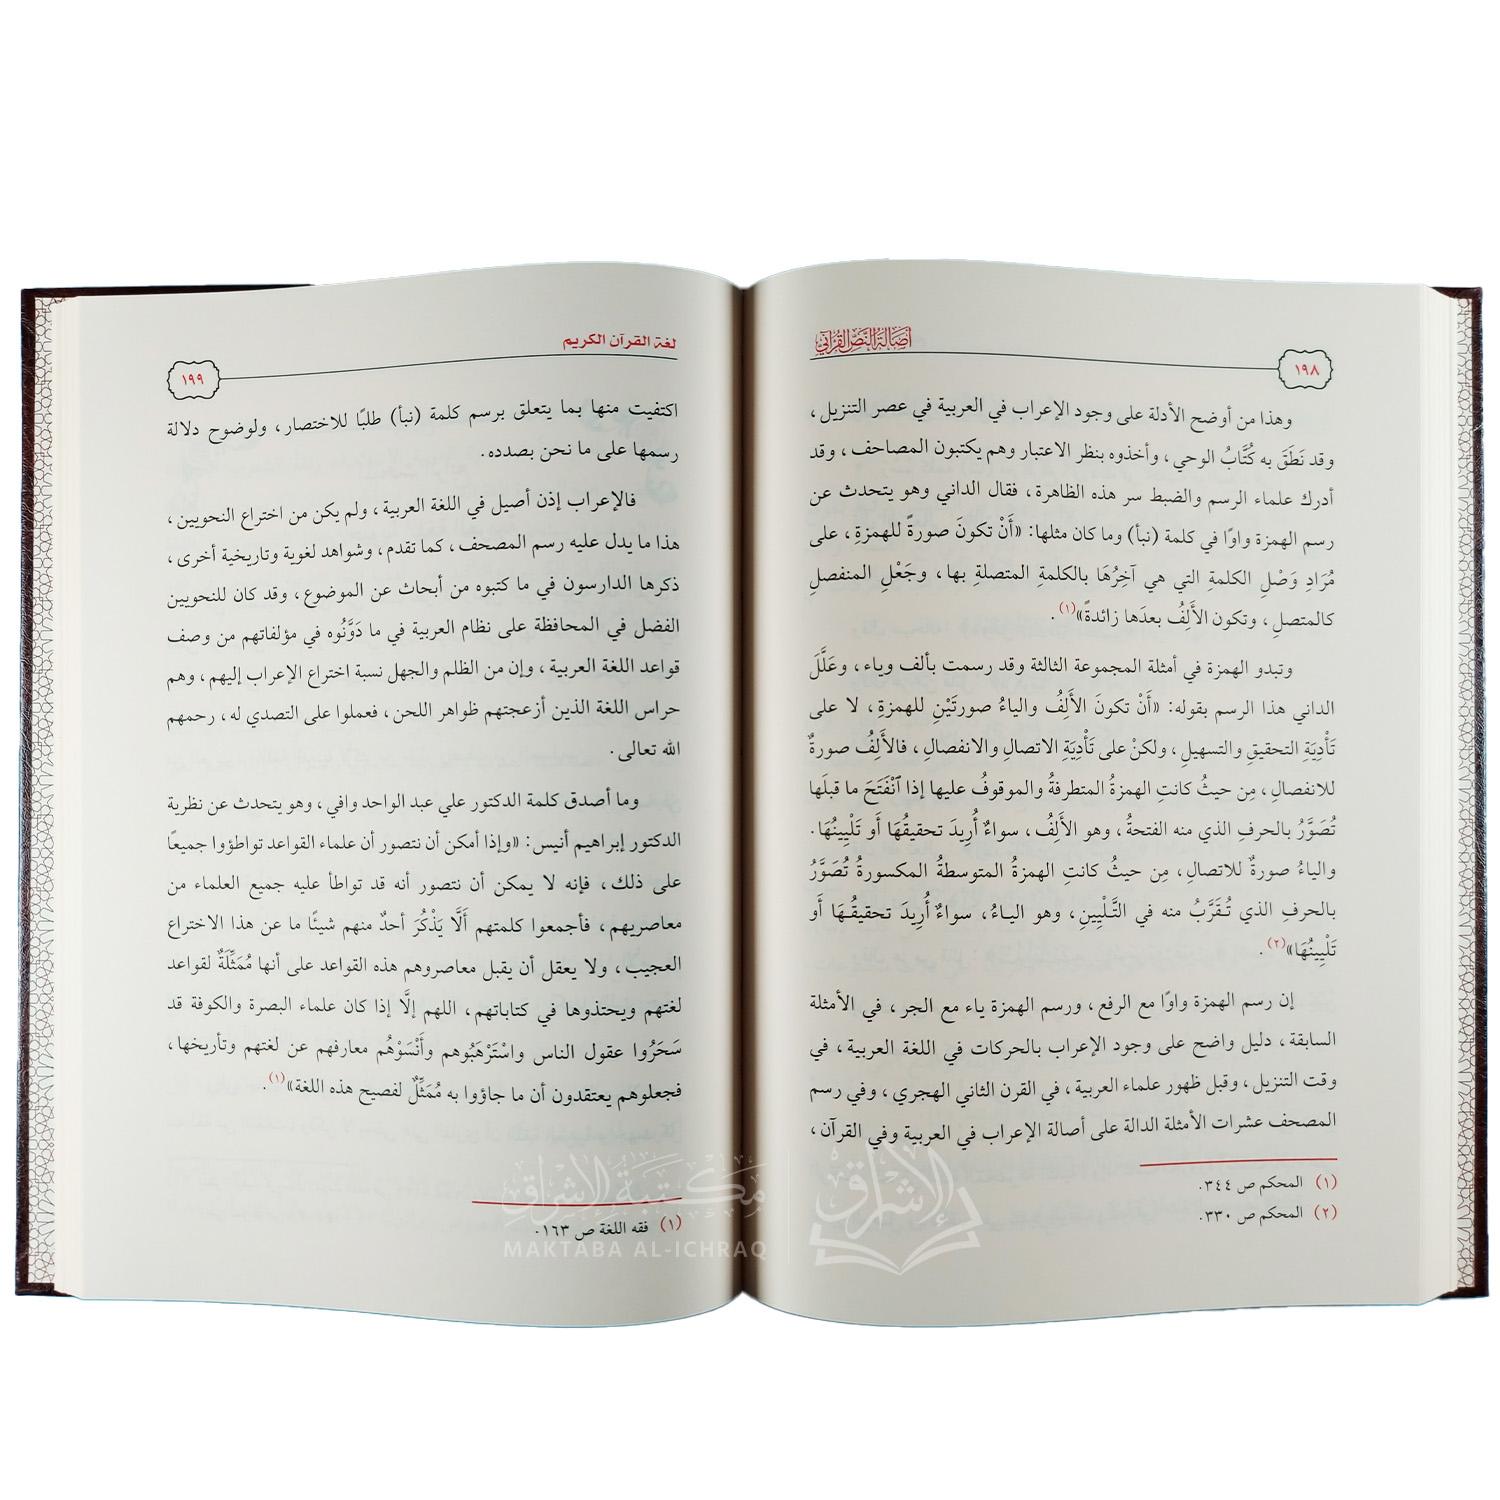 أصالة النص القرآني
١٩٨
وهذا من أوضح الأدلة على وجود الإعراب في العربية في عصر التنزيل،
وقد نَطَقَ به كُتَّابُ الوحي، وأخذوه بنظر الاعتبار وهم يكتبون المصاحف، وقد
أدرك علماء الرسم والضبط سر هذه الظاهرة، فقال الداني وهو يتحدث عن
رسم الهمزة واوًا في كلمة (نبأ) وما كان مثلها: «أَنْ تكونَ صورةً للهمزةِ، على
مُرَادِ وَصْلِ الكلمةِ التي هي آخِرُهَا بالكلمةِ المتصلةِ بها، وجَعْلِ المنفصلِ
كالمتصلِ، وتكون الأَلِفُ بعدَها زائدةً»(١).
وتبدو الهمزة في أمثلة المجموعة الثالثة وقد رسمت بألف وياء، وعَلَّلَ
الداني هذا الرسم بقوله: «أَنْ تكونَ الأَلِفُ والياءُ صورتَيْنِ للهمزةِ، لا على
تَأْدِيَةِ التحقيقِ والتسهيلِ، ولكنْ على تَأْدِيَةِ الاتصالِ والانفصالِ، فالأَلِفُ صورةٌ
للانفصالِ، مِن حيثُ كانتِ الهمزةُ المتطرفةُ والموقوفُ عليها إذا ٱنْفَتَحَ ما قبلَها
تُصَوَّرُ بالحرفِ الذي منه الفتحةُ، وهو الأَلِفُ، سواءٌ أُرِيدَ تحقيقُهَا أَو تَلْيِينُهَا.
والياءُ صورةٌ للاتصالِ، مِن حيثُ كانتِ الهمزةُ المتوسطةُ المكسورةُ تُصَوَّرُ
بالحرفِ الذي تُقَرَّبُ منه في التَّلْيِينِ، وهو الياءُ، سواءٌ أُرِيدَ تحقيقُهَا أَو
تَلْيِينُهَا»(٢).
إن رسم الهمزة واوًا مع الرفع، ورسم الهمزة ياء مع الجر، في الأمثلة
السابقة، دليل واضح على وجود الإعراب بالحركات في اللغة العربية، في
وقت التنزيل، وقبل ظهور علماء العربية، في القرن الثاني الهجري، وفي رسم
المصحف عشرات الأمثلة الدالة على أصالة الإعراب في العربية وفي القرآن،
(١) المحكم ص ٣٤٤.
(٢) المحكم ص ٣٣٠.
لغة القرآن الكريم
١٩٩
اكتفيت منها بما يتعلق برسم كلمة (نبأ) طلبًا للاختصار، ولوضوح دلالة
رسمها على ما نحن بصدده.
فالإعراب إذن أصيل في اللغة العربية، ولم يكن من اختراع النحويين،
هذا ما يدل عليه رسم المصحف، كما تقدم، وشواهد لغوية وتاريخية أخرى،
ذكرها الدارسون في ما كتبوه من أبحاث عن الموضوع، وقد كان للنحويين
الفضل في المحافظة على نظام العربية في ما دَوَّنُوه في مؤلفاتهم من وصف
قواعد اللغة العربية، وإن من الظلم والجهل نسبة اختراع الإعراب إليهم، وهم
حراس اللغة الذين أزعجتهم ظواهر اللحن، فعملوا على التصدي له، رحمهم
الله تعالى.
وما أصدق كلمة الدكتور علي عبد الواحد وافي، وهو يتحدث عن نظرية
الدكتور إبراهيم أنيس: «وإذا أمكن أن نتصور أن علماء القواعد تواطؤوا جميعًا
على ذلك، فإنه لا يمكن أن نتصور أنه قد تواطأ عليه جميع العلماء من
معاصريهم، فأجمعوا كلمتهم أَلَّا يَذْكُرَ أحدٌ منهم شيئًا ما عن هذا الاختراع
العجيب، ولا يعقل أن يقبل معاصروهم هذه القواعد على أنها مُمَثِّلَةٌ لقواعد
لغتهم ويحتذوها في كتاباتهم، اللهم إلَّا إذا كان علماء البصرة والكوفة قد
سَحَرُوا عقول الناس واسْتَرْهَبُوهم وأَنْسَوْهُم معارفهم عن لغتهم وتأريخها،
فجعلوهم يعتقدون أن ما جاؤوا به مُمَثِّلٌ لفصيح هذه اللغة»(١).
(١) فقه اللغة ص ١٦٣.
مكتبة الإشراق
MAKTABA AL-ICHRAQ
الإشراق